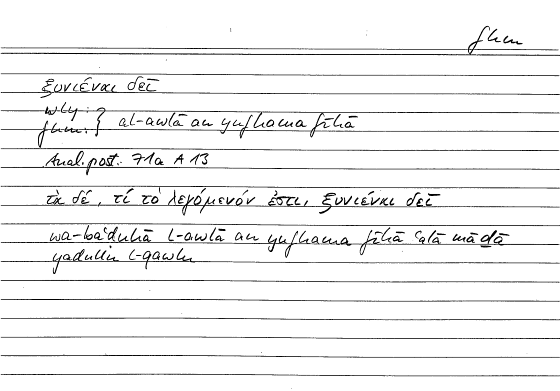 fhm
ξυνιέναι δεῖ
wly :
fhm : } al-awlā an yufhama fīhā
Anal. post. 71a A 13
τὰ δέ, τί τὸ λεγόμενόν ἐστι, ξυνιέναι δεῖ
wa-baʿḍuhā l-awlā an yufhama fīhā ʿalā māḏā
yadullu l-qawlu